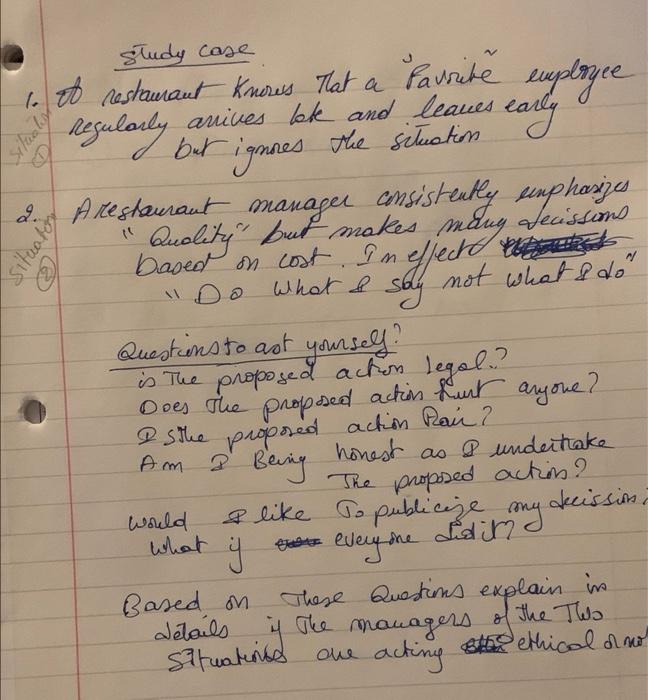 Study case
1. A restaurant knows that a "Favorite" employee
Situation ①
regularly arrives late and leaves early
but ignores the situation
2. A restaurant manager consistently emphasizes
Situation ②
"Quality" but makes many decissions
based on cost. In effect
"Do what I say not what I do"
Questions to ast yourself?
is The proposed action legal?
Does The proposed action hurt anyone?
Is The proposed action Fair?
Am I Being honest as I undertake
The proposed action?
Would I like To publicize my decission?
What if everyone did it?
Based on These Questions explain in
détails if The managers of The Two
Situations are acting ethical or not